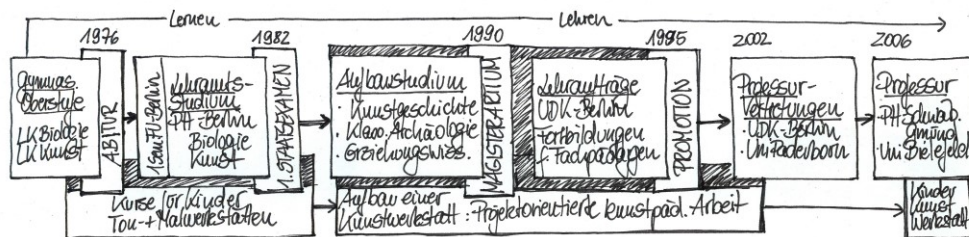 Lernen
Lehren
1976
1982
1990
1995
2002
2006
gymnas.
Oberstufe
LK Biologie
LK Kunst
ABITUR
1 Sem FU-Berlin
Lehramts-
Studium
PH-Berlin
Biologie
Kunst
1. STAATSEXAMEN
Aufbaustudium
· Kunstgeschichte
· Klass. Archäologie
· Erziehungswiss.
MAGISTERARTIUM
Lehraufträge
UDK-Berlin
Fortbildungen
f. Fachpädagogen
PROMOTION
Professur-
Vertretungen
· UDK-Berlin
· Uni Paderborn
Professur
· PH Schwäb.
Gmünd
· Uni Bielefeld
Kurse für Kinder
Ton- + Malwerkstätten
Aufbau einer
Kunstwerkstatt: Projektorientierte kunstpäd. Arbeit
Kinder
Kunst
Werkstatt